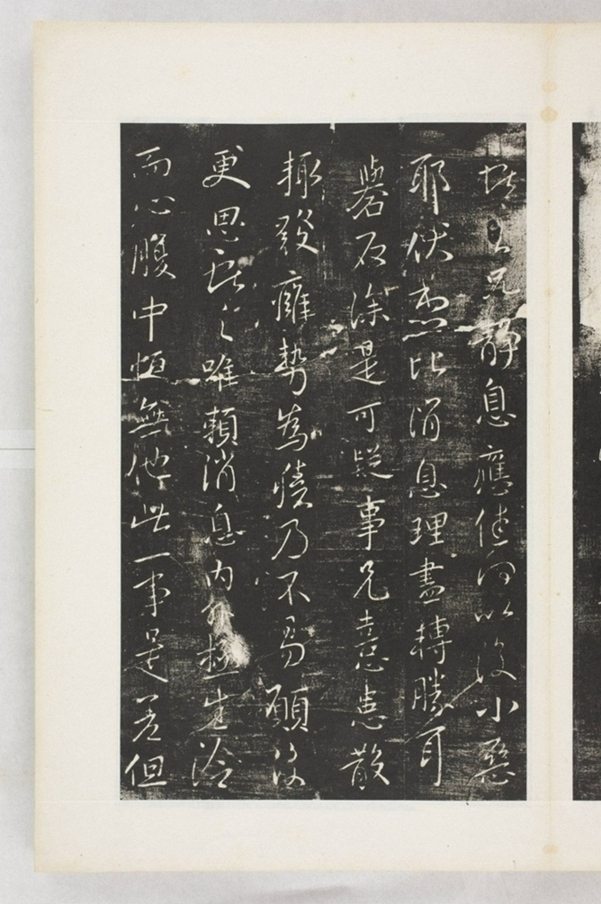 兄静息應佳何以復小惡
耶伏想比消息理盡轉勝耳
礜石深是可疑事兄憙患散
輒發癰勢為積乃不易願復
更思之唯賴消息內外極生冷
而心腹中恒無他此一事是差但